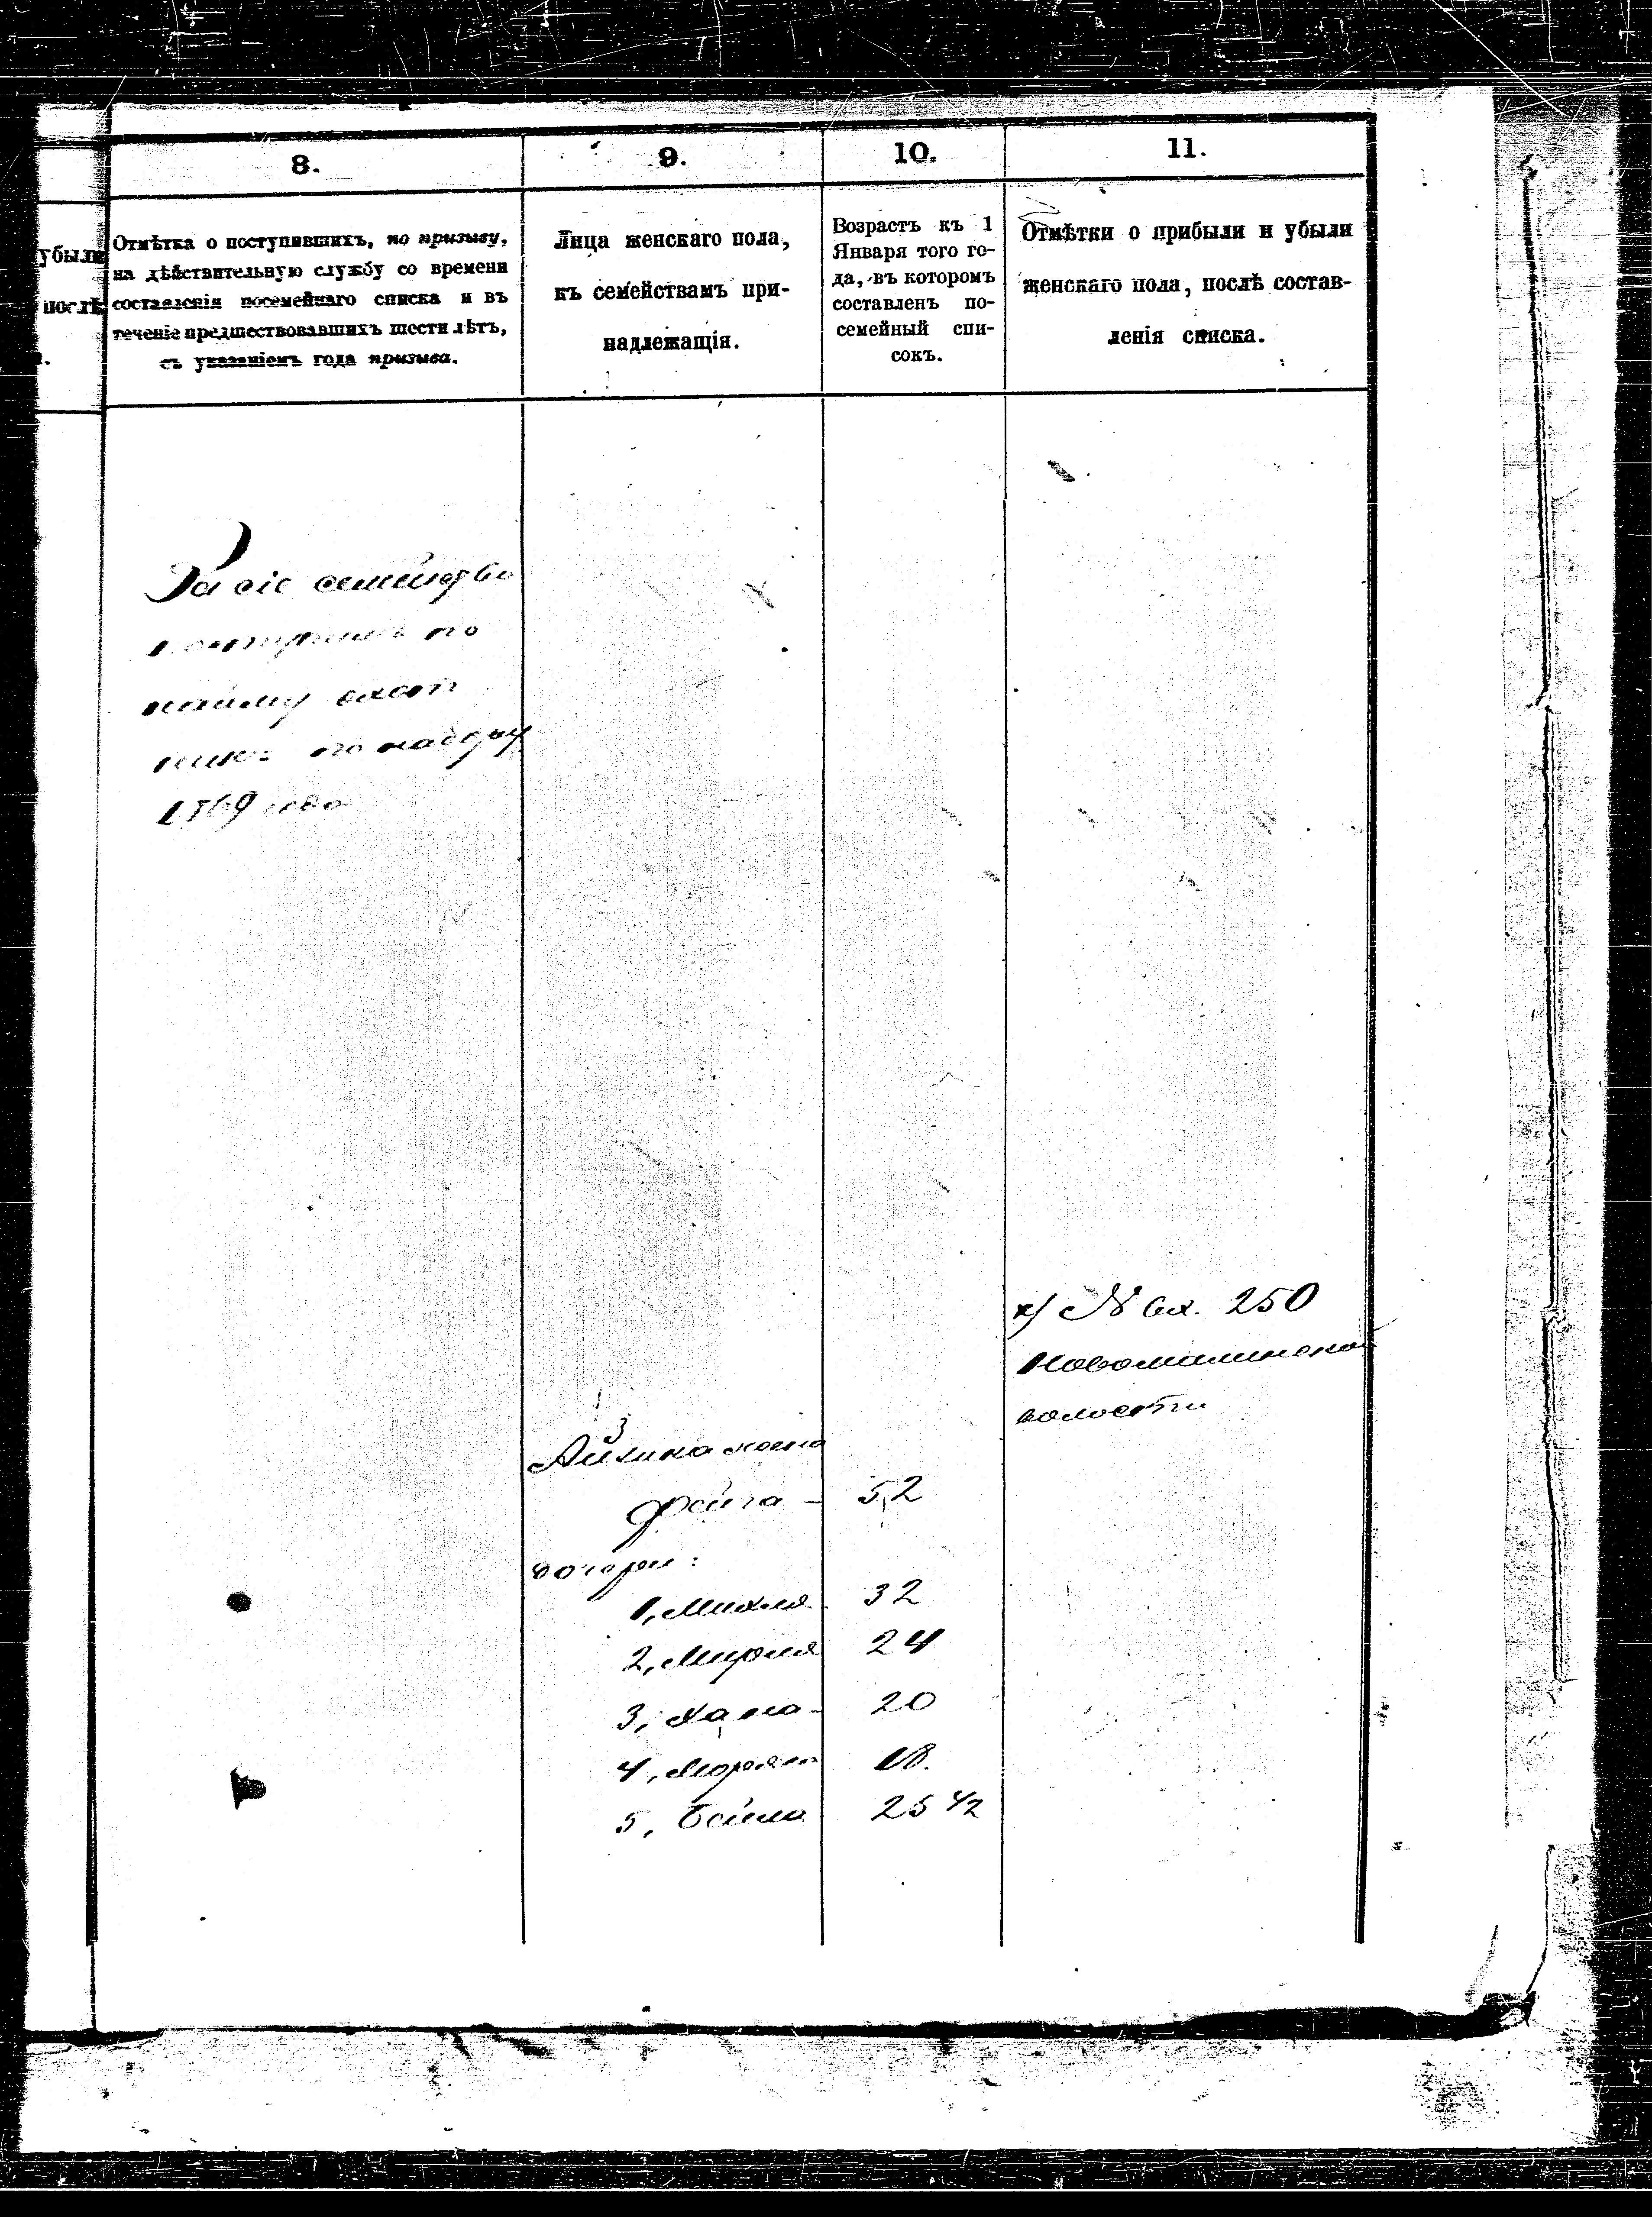 8.
9.
10.
11.
убыли
послѣ
Отмѣтка о поступившихъ, по призыву,
на дѣйствительную службу со времени
составленія посемейнаго списка и въ
теченіе предшествовавшихъ шести лѣтъ,
съ указаніемъ года призыва.
Лица женскаго пола,
къ семействамъ при-
надлежащія.
Возрастъ къ 1
Января того го-
да, въ которомъ
составленъ по-
семейный спи-
сокъ.
Отмѣтки о прибыли и убыли
женскаго пола, послѣ состав-
ленія списка.
За сіе семейство
по
набору
1869 года
х) № вх. 250
Новомалинской
волости
Айзика жена
Фейга - 52
дочери:
1, Михля 32
2, 24
3, Хана - 20
4, 18.
5, Бейла 25 1/2